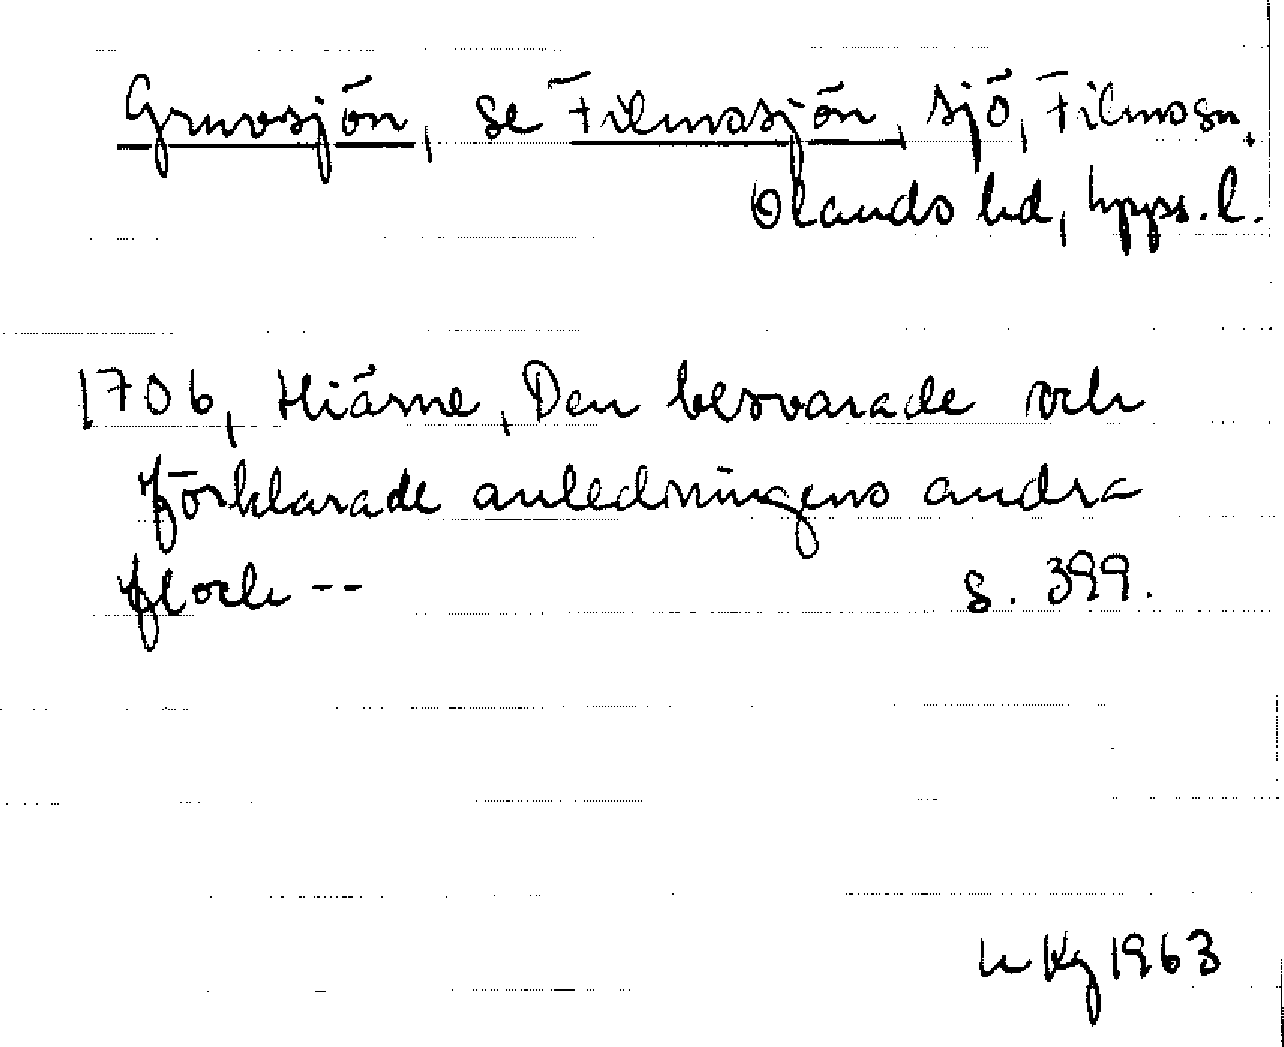 Gruvsjön, se Filmssjön, sjö, Films sn,
Olands hd, Upps. l.
1706, Hiärne, Den besvarade och
förklarade anledningens andra
flock -- s. 399.
Kg 1963